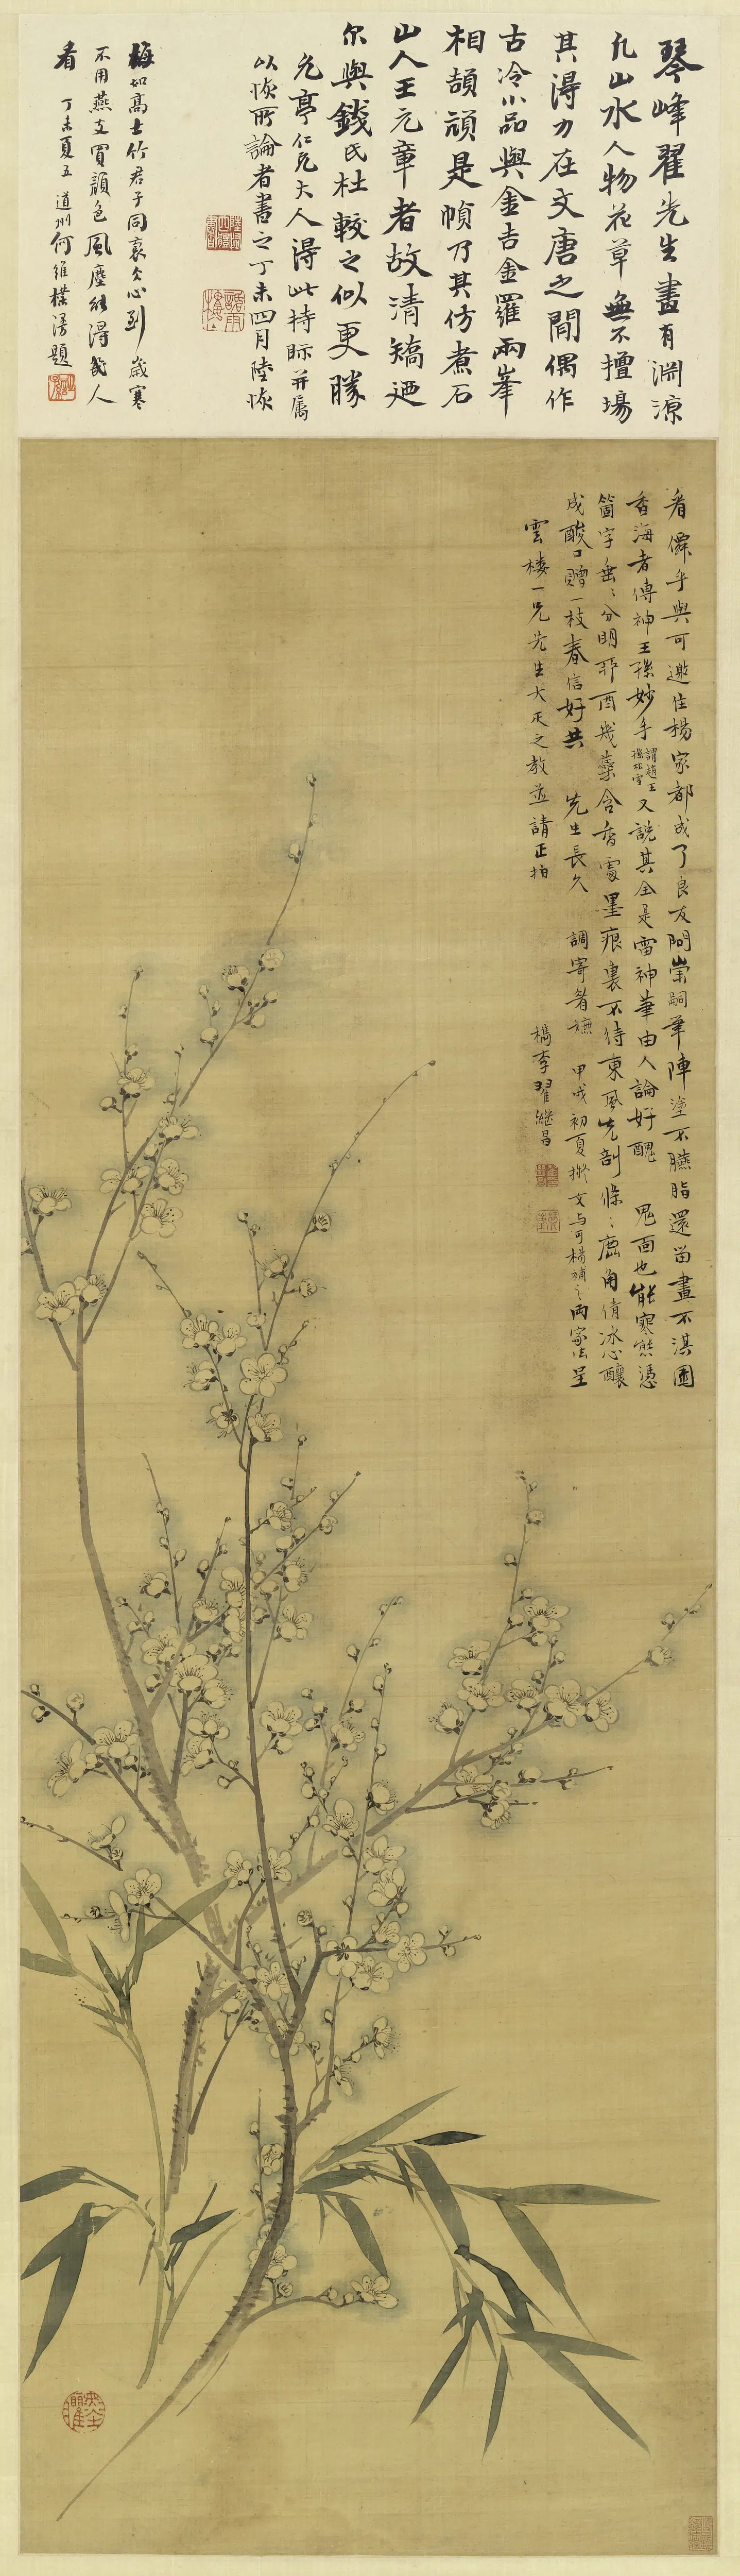 琴峰翟先生畫有淵源
凡山水人物花草無不擅場
其得力在文唐之間偶作
古冷小品與金吉金羅兩峯
相頡頏是幀乃其仿煮石
山人王元章者故清矯迺
尔與錢氏杜較之似更勝
允亭仁兄大人得此持眎并属
以恢所論者書之丁未四月陸恢
梅如高士竹君子同裛久心到歲寒
不用燕支買顔色風塵能得幾人
看 丁未夏五 道州何維樸漫題
看僛乎與可邀住楊家都成了良友問崇嗣筆陣塗不臙脂還笛畫不淇園
香海者傳神王孫妙手謂趙王孫松雪又說其全是雷神筆由人論好醜 鬼面也能寒態憑
箇字垂垂分明那酉幾蘂含香處墨痕裏不待東風先剖條條鹿角倩冰心釀
成酸口贈一枝春信好共 先生長久 調寄眉嫵 甲戌初夏撫文与可楊補之兩家法呈
雲樓一兄先生大疋之教並請正拍
檇李翟繼昌